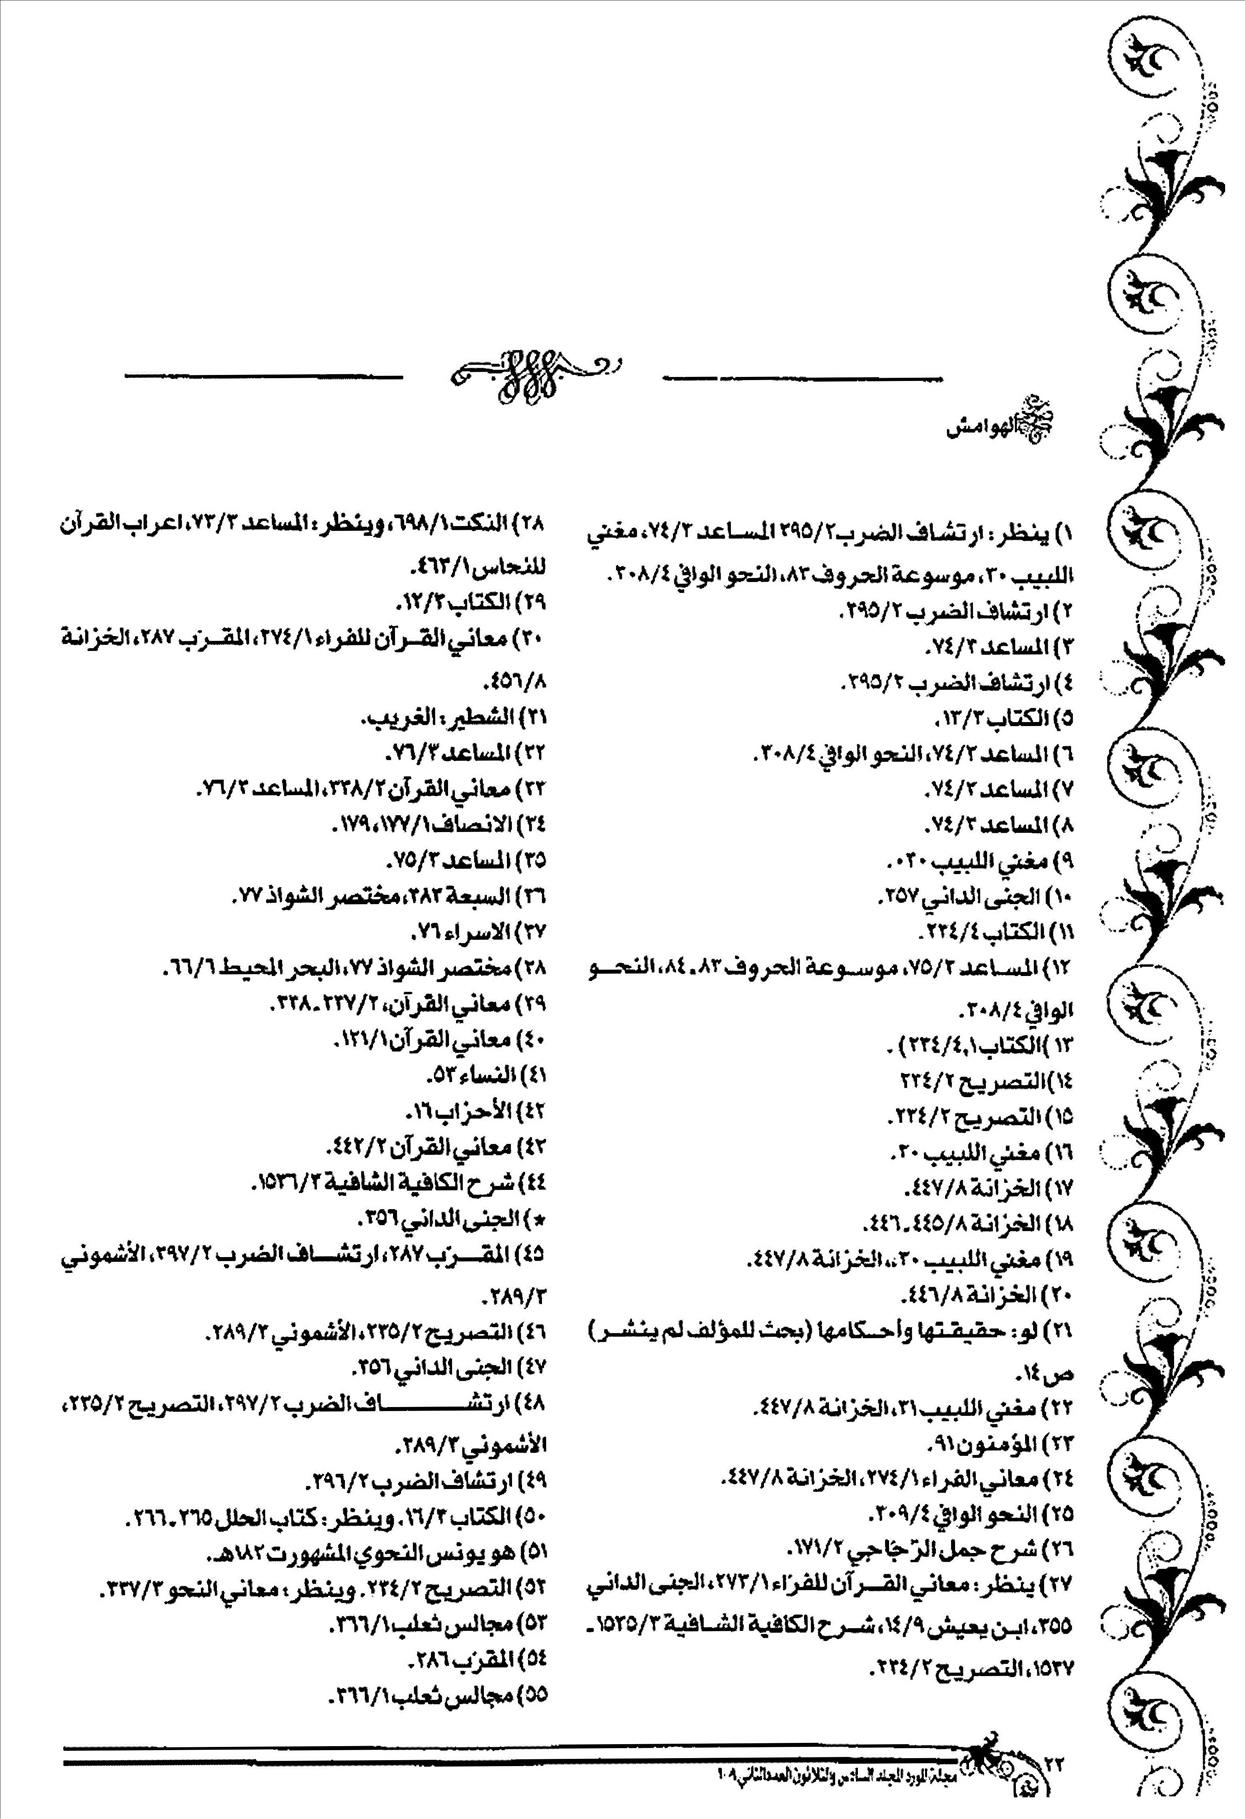 الهوامش
١) ينظر: ارتشاف الضرب ٣٩٥/٢ المساعد ٧٤/٣، مغني
اللبيب ٣٠، موسوعة الحروف ٨٣، النحو الوافي ٣٠٨/٤.
٢) ارتشاف الضرب ٣٩٥/٢.
٣) المساعد ٧٤/٣.
٤) ارتشاف الضرب ٣٩٥/٢.
٥) الكتاب ١٣/٣.
٦) المساعد ٧٤/٣، النحو الوافي ٣٠٨/٤.
٧) المساعد ٧٤/٣.
٨) المساعد ٧٤/٣.
٩) مغني اللبيب ٠٣٠.
١٠) الجنى الداني ٣٥٧.
١١) الكتاب ٢٣٤/٤.
١٢) المساعد ٧٥/٣، موسوعة الحروف ٨٣ـ٨٤، النحو
الوافي ٣٠٨/٤.
١٣) الكتاب ٢٣٤/٤,١).
١٤) التصريح ٢٣٤/٢
١٥) التصريح ٢٣٤/٢.
١٦) مغني اللبيب ٣٠.
١٧) الخزانة ٤٤٧/٨.
١٨) الخزانة ٤٤٥/٨ـ٤٤٦.
١٩) مغني اللبيب ٣٠،، الخزانة ٤٤٧/٨.
٢٠) الخزانة ٤٤٦/٨.
٢١) لو: حقيقتها وأحكامها (بحث للمؤلف لم ينشر)
ص١٤.
٢٢) مغني اللبيب ٣١، الخزانة ٤٤٧/٨.
٢٣) المؤمنون ٩١.
٢٤) معاني الفراء ٢٧٤/١، الخزانة ٤٤٧/٨.
٢٥) النحو الوافي ٣٠٩/٤.
٢٦) شرح جمل الزجاجي ١٧١/٢.
٢٧) ينظر: معاني القرآن للفراء ٢٧٣/١، الجنى الداني
٣٥٥، ابن يعيش ١٤/٩، شرح الكافية الشافية ١٥٣٥/٣ـ
١٥٣٧، التصريح ٢٣٤/٢.
٢٨) النكت ٦٩٨/١، وينظر: المساعد ٧٣/٣، اعراب القرآن
للنحاس ٤٦٣/١.
٢٩) الكتاب ١٢/٣.
٣٠) معاني القرآن للفراء ٢٧٤/١، المقرب ٢٨٧، الخزانة
٤٥٦/٨.
٣١) الشطير: الغريب.
٣٢) المساعد ٧٦/٣.
٣٣) معاني القرآن ٣٣٨/٢، المساعد ٧٦/٣.
٣٤) الانصاف ١٧٧/١، ١٧٩.
٣٥) المساعد ٧٥/٣.
٣٦) السبعة ٣٨٣، مختصر الشواذ ٧٧.
٣٧) الاسراء ٧٦.
٣٨) مختصر الشواذ ٧٧، البحر المحيط ٦٦/٦.
٣٩) معاني القرآن، ٣٣٧/٢ـ٣٣٨.
٤٠) معاني القرآن ١٢١/١.
٤١) النساء ٥٣.
٤٢) الأحزاب ١٦.
٤٣) معاني القرآن ٤٤٢/٢.
٤٤) شرح الكافية الشافية ١٥٣٦/٣.
*) الجنى الداني ٣٥٦.
٤٥) المقرّب ٢٨٧، ارتشاف الضرب ٣٩٧/٢، الأشموني
٢٨٩/٣.
٤٦) التصريح ٢٣٥/٢، الأشموني ٢٨٩/٣.
٤٧) الجنى الداني ٣٥٦.
٤٨) ارتشاف الضرب ٣٩٧/٢، التصريح ٢٣٥/٢،
الأشموني ٢٨٩/٣.
٤٩) ارتشاف الضرب ٣٩٦/٢.
٥٠) الكتاب ١٦/٣. وينظر: كتاب الحلل ٢٦٥ـ٢٦٦.
٥١) هو يونس النحوي المشهورت ١٨٢هـ.
٥٢) التصريح ٢٣٤/٢. وينظر: معاني النحو ٣٣٧/٣.
٥٣) مجالس ثعلب ٣٦٦/١.
٥٤) المقرّب ٢٨٦.
٥٥) مجالس ثعلب ٣٦٦/١.
٢٢
مجلة المورد المجلد السادس والثلاثون العدد الثاني ٢٠٠٩